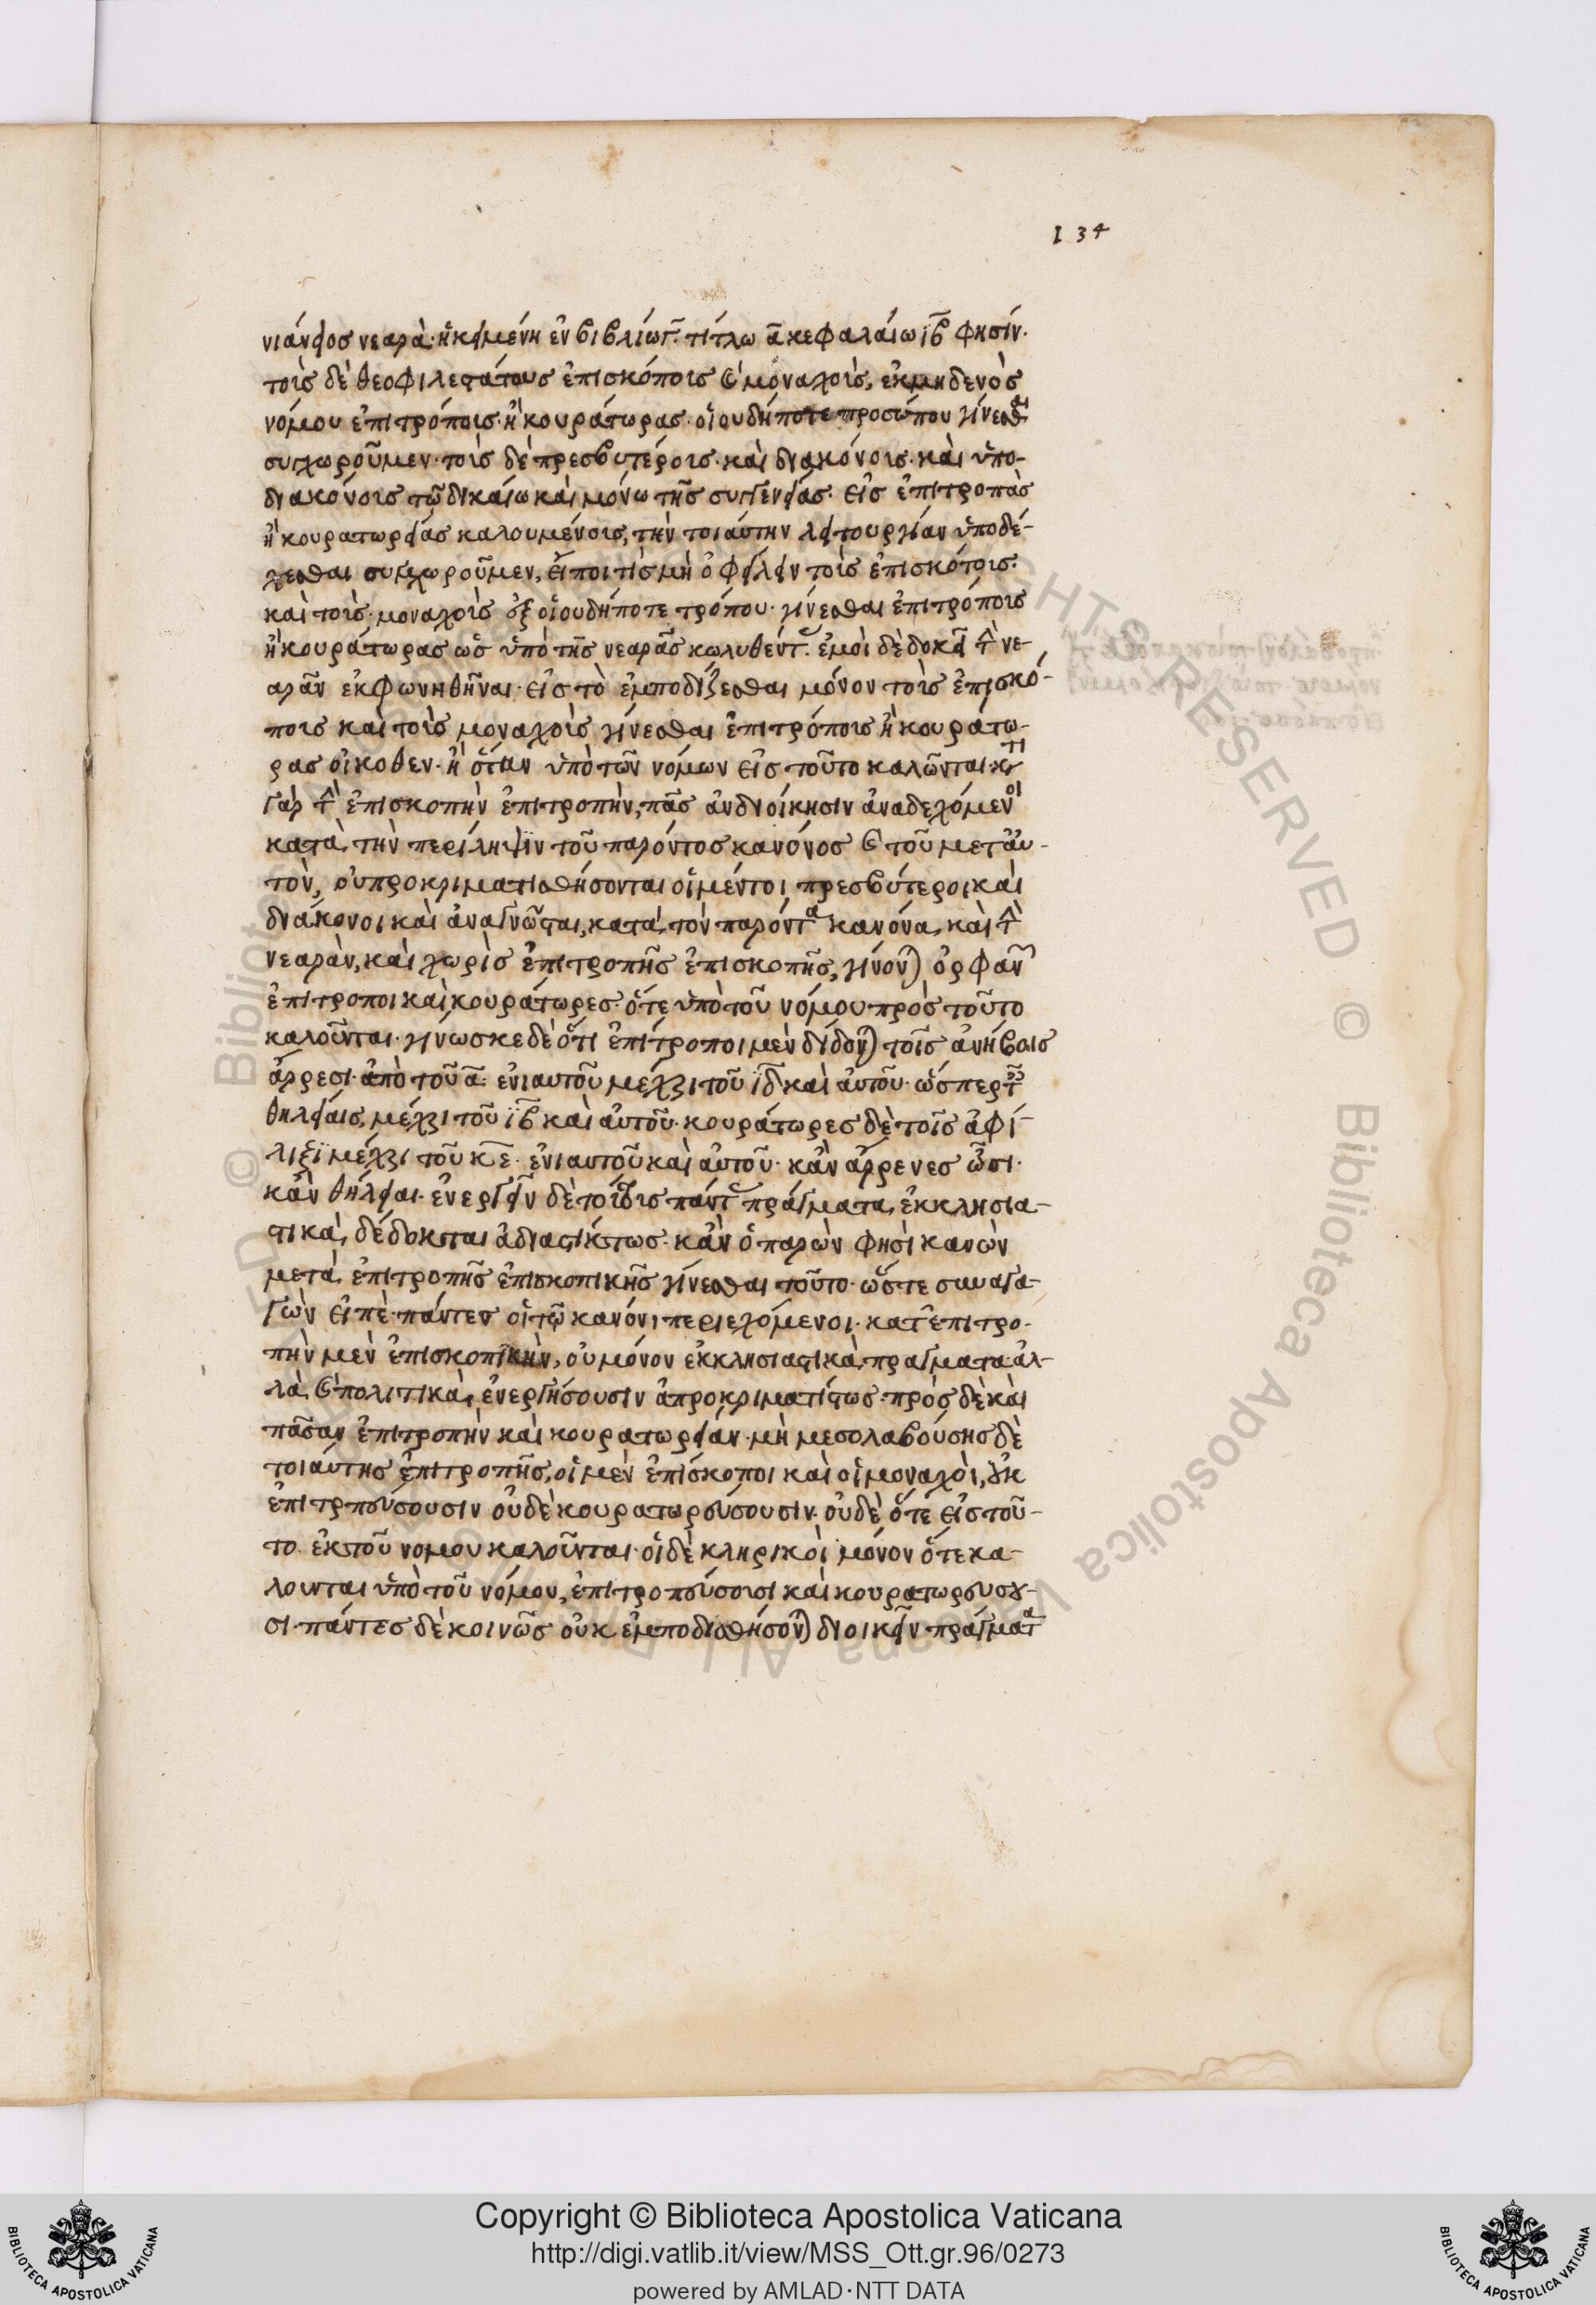 134
νιάνειος νεαρὰ· ἡ κειμένη ἐν βιβλίω γ̅. τίτλω α̅ κεφαλαίω ιβ̅ φησίν·
τοῖς δὲ θεοφιλεστάτους ἐπισκόποις καὶ μοναχοῖς, ἐκ μηδενὸς
νόμου ἐπιτρόποις· ἢ κουράτωρας· οἱουδήποτε προσώπου γίνεσθαι
συγχωροῦμεν· τοῖς δὲ πρεσβυτέροις· καὶ διακόνοις· καὶ ὑπο-
διακόνοις τῶ δικαίω καὶ μόνω τῆς συγγενείας· εἰς ἐπιτροπὰς
ἢ κουρατωρείας καλουμένοις, τὴν τοιαύτην λειτουργίαν ὑποδέ-
χεσθαι συγχωροῦμεν, εἴποι τὶς μὴ ὀφείλειν τοῖς ἐπισκόποις·
καὶ τοῖς· μοναχοῖς ἐξ οἱουδήποτε τρόπου· γίνεσθαι ἐπιτρόποις
ἢ κουράτωρας ὡς ὑπὸ τῆς νεαρᾶς κωλυθέντας. ἐμοὶ δὲ δοκεῖ τὴν νε-
αρὰν ἐκφωνηθῆναι· εἰς τὸ ἐμποδίζεσθαι μόνον τοῖς ἐπισκό-
ποις καὶ τοῖς μοναχοῖς γίνεσθαι ἐπιτρόποις ἢ κουράτω-
ρας οἴκοθεν· ἢ ὅταν ὑπὸ τῶν νόμων εἰς τοῦτο καλῶνται· κατὰ
γὰρ τὴν ἐπισκοπὴν ἐπιτροπὴν, πᾶς ἂν διοίκησιν ἀναδεχόμενοι
κατὰ τὴν περίληψιν τοῦ παρόντος κανόνος καὶ τοῦ μετ αὐ-
τὸν, οὐ προκριματισθήσονται οἱ μέντοι πρεσβύτεροι καὶ
διάκονοι καὶ ἀναγνῶσται, κατὰ τὸν παρόντα κανόνα, καὶ τὴν
νεαρὰν, καὶ χωρὶς ἐπιτροπῆς ἐπισκοπῆς, γίνονται ὀρφανῶν
ἐπίτροποι καὶ κουράτωρες· ὅτε ὑπὸ τοῦ νόμου πρὸς τοῦτο
καλοῦνται· γίνωσκε δὲ ὅτι ἐπίτροποι μὲν δίδονται τοῖς ἀνήβοις
ἄρρεσι· ἀπὸ τοῦ α̅· ἐνιαυτοῦ μέχρι τοῦ ιδ̅ καὶ αὐτοῦ· ὥσπερ ταῖς
θηλείαις, μέχρι τοῦ ιβ̅ καὶ αὐτοῦ· κουράτωρες δὲ τοῖς ἀφί-
λιξι μέχρι τοῦ κε̅· ἐνιαυτοῦ καὶ αὐτοῦ· κἂν ἄρρενες ὦσι·
κἂν θήλειαι· ἐνεργεῖν δὲ τοῖς πάντας πράγματα, ἐκκλησια-
στικὰ, δέδοκται ἀδιαστίκτως· κἂν ὁ παρὼν φησὶ κανὼν
μετὰ ἐπιτροπῆς ἐπισκοπικῆς γίνεσθαι τοῦτο· ὥστε συναγα-
γὼν εἰπὲ· πάντες οἱ τῶ κανόνι περιεχόμενοι· κατ ἐπιτρο-
πὴν μὲν ἐπισκοπικὴν, οὐ μόνον ἐκκλησιαστικὰ, πράγματα ἀλ-
λὰ καὶ πολιτικὰ, ἐνεργήσουσιν ἀπροκριματίστως· πρὸς δὲ καὶ
πᾶσαν ἐπιτροπὴν καὶ κουρατωρείαν· μὴ μεσολαβούσης δὲ
τοιαύτης ἐπιτροπῆς, οἱ μὲν ἐπίσκοποι καὶ οἱ μοναχοὶ, οὐκ
ἐπιτροπεύσουσιν οὐδὲ κουρατωρεύσουσιν· οὐδὲ ὅτε εἰς τοῦ-
το ἐκ τοῦ νόμου καλοῦνται· οἱ δὲ κληρικοὶ μόνον ὅτε κα-
λουνται ὑπὸ τοῦ νόμου, ἐπιτροπεύσουσι καὶ κουρατωρεύσου-
σι· πάντες δὲ κοινῶς οὐκ ἐμποδισθήσονται διοικεῖν πράγματα
Copyright © Biblioteca Apostolica Vaticana
http://digi.vatlib.it/view/MSS_Ott.gr.96/0273
powered by AMLAD·NTT DATA